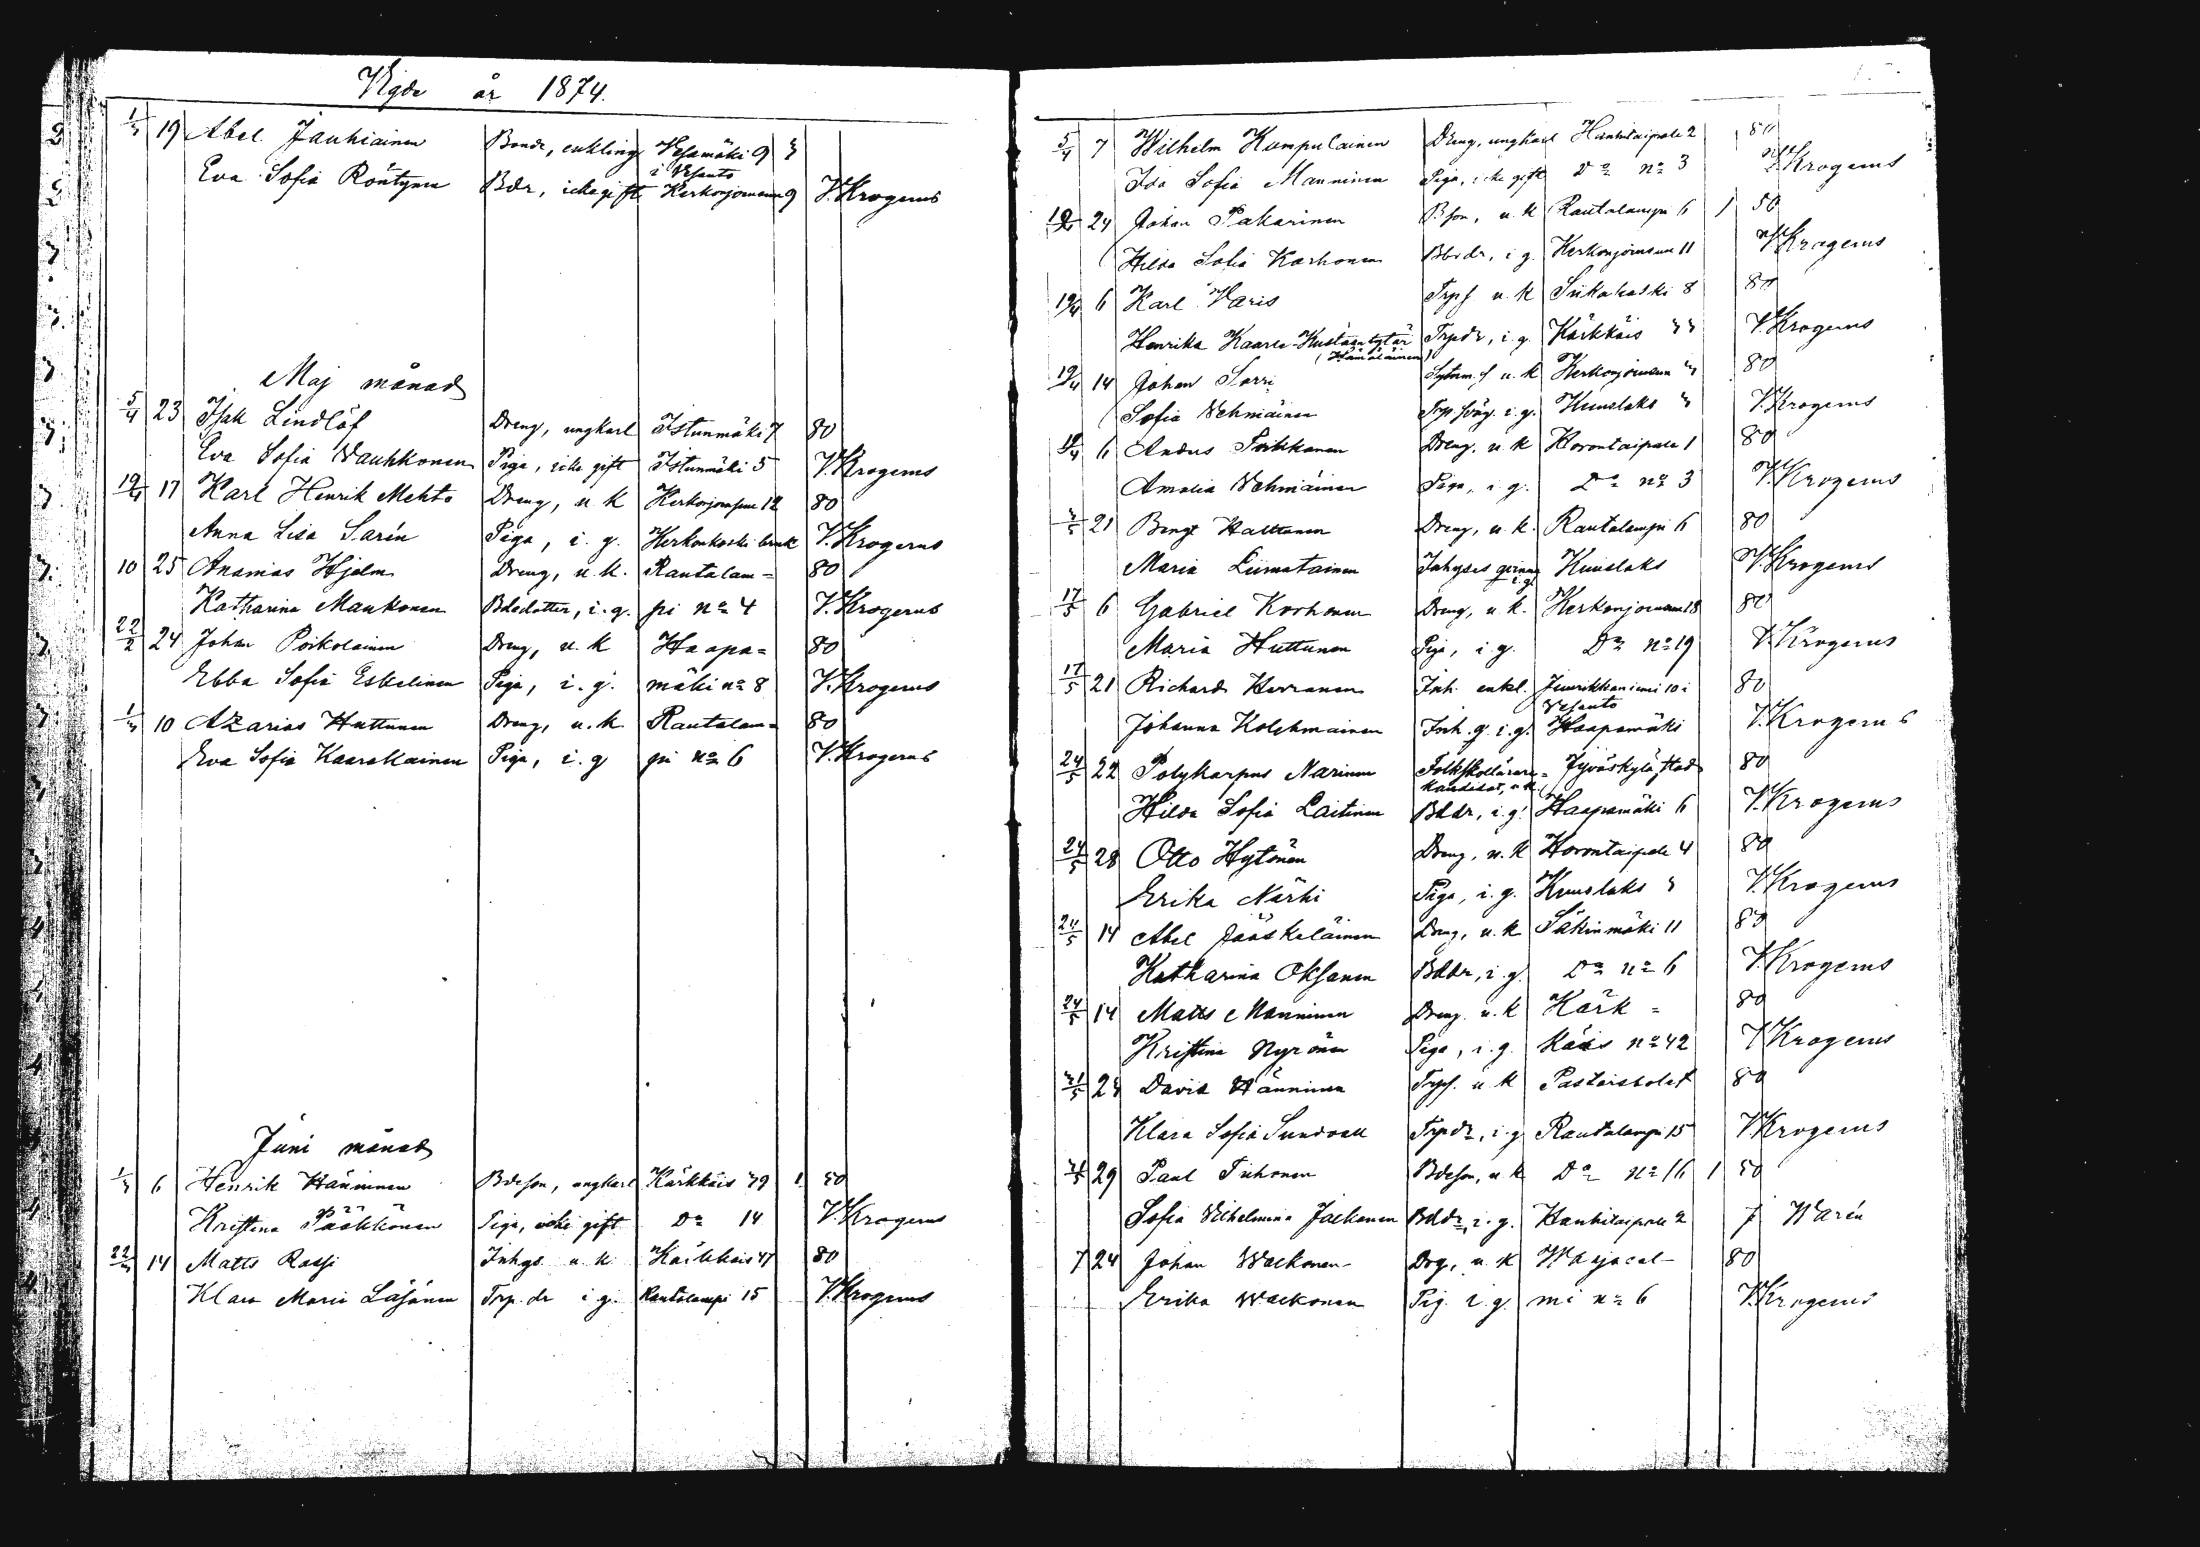 Vigde år 1874.
1/3 19 Abel Jauhiainen Bonde, enkling Vesamäki 9 3
i Vesanto
Eva Sofia Röntynen Bdr, icke gift Kerkonjoensuu 9 V. Krogerus
Maj månad
5/4 23 Isak Lindlöf Dreng, ungkarl Istunmäki 7 80
Eva Sofia Vauhkonen Piga, icke gift Istunmäki 5 V. Krogerus
19/4 17 Karl Henrik Mehto Dreng, u. k Kerkonjoensuu 12 80
Anna Lisa Sarin Piga, i. g. Kerkonkoski bruk V. Krogerus
10 25 Ananias Hjelm Dreng, u. k. Rautalam= 80
Katharina Maukonen Bdedotter, i. g. pi no 4 V. Krogerus
22/2 24 Johan Poikolainen Dreng, u. k Haapa= 80
Ebba Sofia Eskelinen Piga, i. g. mäki no 8 V. Krogerus
1/3 10 Azarias Huttunen Dreng, u. k Rautalam= 80
Eva Sofia Kaarakainen Piga, i. g pi no 6 V. Krogerus
Juni månad
1/3 6 Henrik Hänninen Bdeson, ungkarl Kärkkäis 39 1 50
Kristina Pääkkönen Piga, icke gift Do 14 V. Krogerus
22/3 14 Matts Rossi Inhys u. k. Kärkkäis 47 80
Klara Maria Läsänen Trp. dr i. g. Rautalampi 15 V. Krogerus
5/4 7 Wilhelm Kumpulainen Dreng, ungkarl Hankitaipale 2 80
Ida Sofia Manninen Piga, icke gift Do no 3 V. Krogerus
12/4 24 Johan Pakarinen Bson, u. k Rautalampi 6 1 50
Hilda Sofia Korhonen Bbrdr, i g. Kerkonjoensuu 11 V. Krogerus
19/4 6 Karl Varis Trpf u. k Sukakoski 8 80
Henrika Kaarle Kustaantytär Trpdr, i. g. Kärkkäis 33 V. Krogerus
(Hämäläinen)
19/4 14 Johan Sorri u. k Kerkonjoensuu 80
Sofia Vehmäinen i. g. Kuuslaks V. Krogerus
19/4 6 Anders Poikkonen Dreng, u. k Horontaipale 1 80
Amalia Vehmäinen Piga, i. g. Do no 3 V. Krogerus
3/5 21 Bengt Halttunen Dreng, u. k. Rautalampi 6 80
Maria Liimatainen Inhyses qvinna i. g. Kuuslaks V. Krogerus
17/5 6 Gabriel Korhonen Dreng, u. k. Kerkonjoensuu 18 80
Maria Huttunen Piga, i. g. Do no 19 V. Krogerus
17/5 21 Richard Herranen Inh. enkl. Junrikkaniemi 10 i 80
Vesanto
Johanna Kolehmainen Inh. q. i. g. Haapamäki V. Krogerus
24/5 22 Polykarpus Narinen Folkskollärare= Jyväskylä stad 80
kandidat, u. k.
Hilda Sofia Laitinen Bddr, i. g. Haapamäki 6 V. Krogerus
24/5 28 Otto Hytönen Dreng, u. k Horontaipale 4 80
Erika Närhi Piga, i. g. Kuuslaks 3 V. Krogerus
24/5 14 Abel Jääskeläinen Dreng, u. k Säkinmäki 11 80
Katharina Oksanen Bddr, i. g. Do no 6 V. Krogerus
24/5 14 Matts Manninen Dreng. u. k Kärk= 80
Kristina Nyrönen Piga, i. g. käis no 42 V. Krogerus
31/5 23 David Hänninen Trpf. u. k Pastorsbolet 80
Klara Sofia Sundvall Trpdr, i. g Rautalampi 15 V. Krogerus
31/5 29 Paul Tiihonen Bdeson, u. k Do no 16 1 50
Sofia Vilhelmina Jalkanen Bddr, i. g. Hankitaipale 2 J Warén
7 24 Johan Wackonen Drg, u. k Warjacal- 80
Erika Wackonen Pig. i. g. mi no 6 V. Krogerus